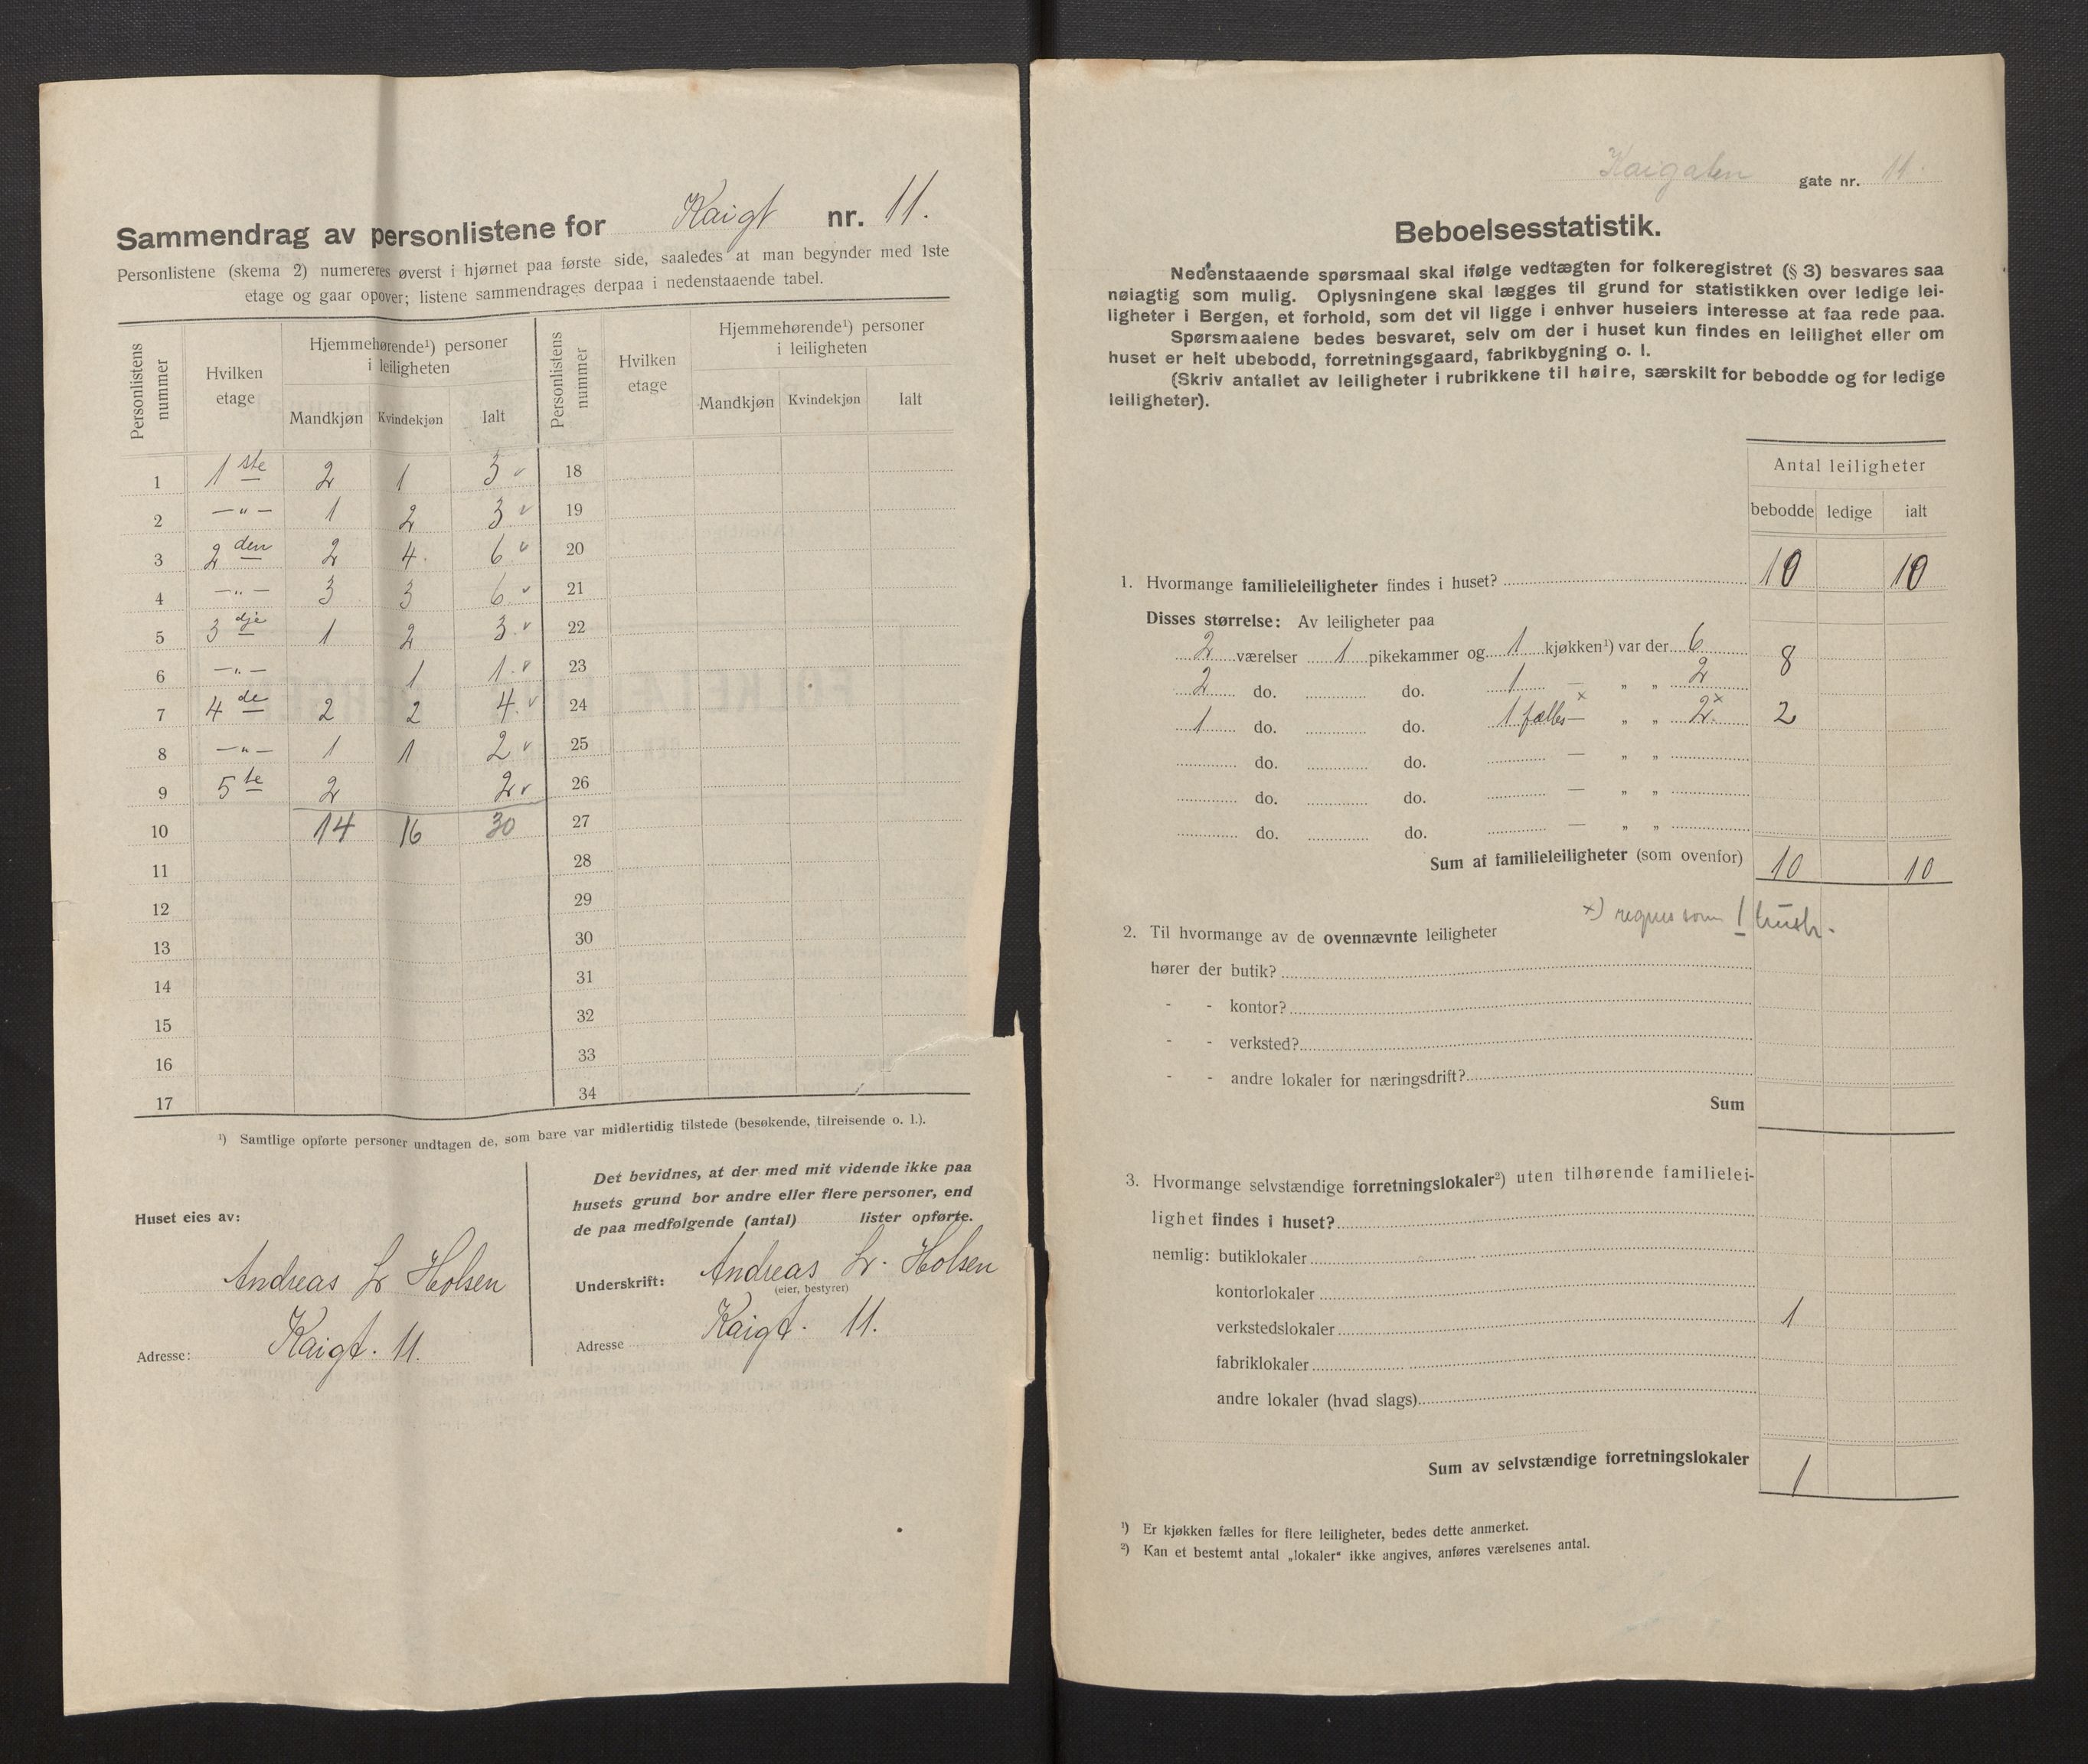 Sammendrag av personlistene for Kaigt nr. 11.
Personlistene (skema 2) numereres øverst i hjørnet paa første side, saaledes at man begynder med 1ste
etage og gaar opover; listene sammendrages derpaa i nedenstaaende tabel.
Personlistens nummer | Hvilken etage | Hjemmehørende¹) personer i leiligheten | Personlistens nummer | Hvilken etage | Hjemmehørende¹) personer i leiligheten
Mandkjøn | Kvindekjøn | Ialt | Mandkjøn | Kvindekjøn | Ialt
1 1ste 2 1 3 v 18
2 —"— 1 2 3 v 19
3 2den 2 4 6 v 20
4 —"— 3 3 6 v 21
5 3dje 1 2 3. v 22
6 —"— 1 1. v 23
7 4de 2 2 4. v 24
8 —"— 1 1 2 v 25
9 5te 2 2 v 26
10 14 16 30 27
11 28
12 29
13 30
14 31
15 32
16 33
17 34
¹) Samtlige opførte personer undtagen de, som bare var midlertidig tilstede (besøkende, tilreisende o. l.).
Huset eies av:
Andreas Lr Holsen
Adresse: Kaigt. 11.
Det bevidnes, at der med mit vidende ikke paa
husets grund bor andre eller flere personer, end
de paa medfølgende (antal) lister opførte.
Underskrift: Andreas Lr. Holsen
(eier, bestyrer)
Adresse Kaigt. 11.
Kaigaten gate nr. 11.
Beboelsesstatistik.
Nedenstaaende spørsmaal skal ifølge vedtægten for folkeregistret (§ 3) besvares saa
nøiagtig som mulig. Oplysningene skal lægges til grund for statistikken over ledige lei-
ligheter i Bergen, et forhold, som det vil ligge i enhver huseiers interesse at faa rede paa.
Spørsmaalene bedes besvaret, selv om der i huset kun findes en leilighet eller om
huset er helt ubebodd, forretningsgaard, fabrikbygning o. l.
(Skriv antallet av leiligheter i rubrikkene til høire, særskilt for bebodde og for ledige
leiligheter).
Antal leiligheter
bebodde | ledige | ialt
1. Hvormange familieleiligheter findes i huset? 10 10
Disses størrelse: Av leiligheter paa
2 værelser 1 pikekammer og 1 kjøkken¹) var der 6 8
2 do. do. 1 — " " 2
1 do. do. 1 fælles x — " " 2 x 2
do. do. — " "
do. do. — " "
do. do. — " "
Sum af familieleiligheter (som ovenfor) 10 10
x) regnes som 1
2. Til hvormange av de ovennævnte leiligheter
hører der butik?
- - kontor?
- - verksted?
- - andre lokaler for næringsdrift?
Sum
3. Hvormange selvstændige forretningslokaler²) uten tilhørende familielei-
lighet findes i huset?
nemlig: butiklokaler
kontorlokaler
verkstedslokaler 1
fabriklokaler
andre lokaler (hvad slags)
Sum av selvstændige forretningslokaler 1
¹) Er kjøkken fælles for flere leiligheter, bedes dette anmerket.
²) Kan et bestemt antal „lokaler" ikke angives, anføres værelsenes antal.